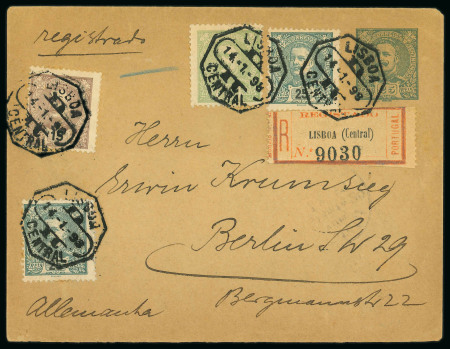 registrado
LISBOA
14-1-96
CENTRAL
LISBOA
14-1-96
CENTRAL
25
LISBOA
14-1-96
CENTRAL
LISBOA
14-1-96
CENTRAL
R
LISBOA (Central)
N.º 9030
PORTUGAL
Herrn
Erwin Krumsieg
Berlin SW 29
Bergmannstr 22
Allemanha